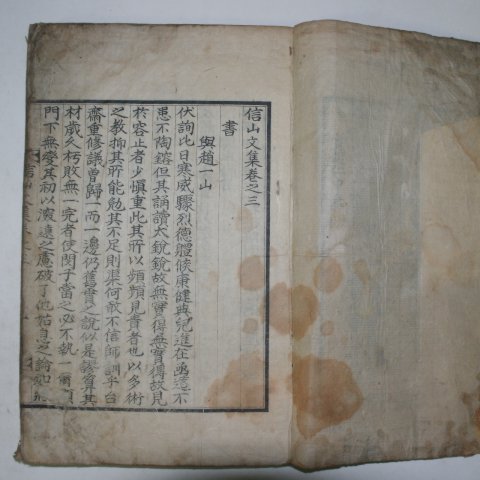 信山文集卷之三
書
與趙一山
伏詢比日寒威驟烈德體候康健與兒進在函筵不
患不陶鎔但其誦讀太銳銳故無實得無實得故見
於容止者少愼重此其所以頻頻見責者也以多術
之教抑其所能勉其不足則渠何敢不信師訓乎台
齋重修議曾歸一而一邊仍舊貫之說似是謬算其
材歲久朽敗無一完者使閔子當之必不執一
門下無變其初以濟遠之慮破了他姑息之論如
信山文集